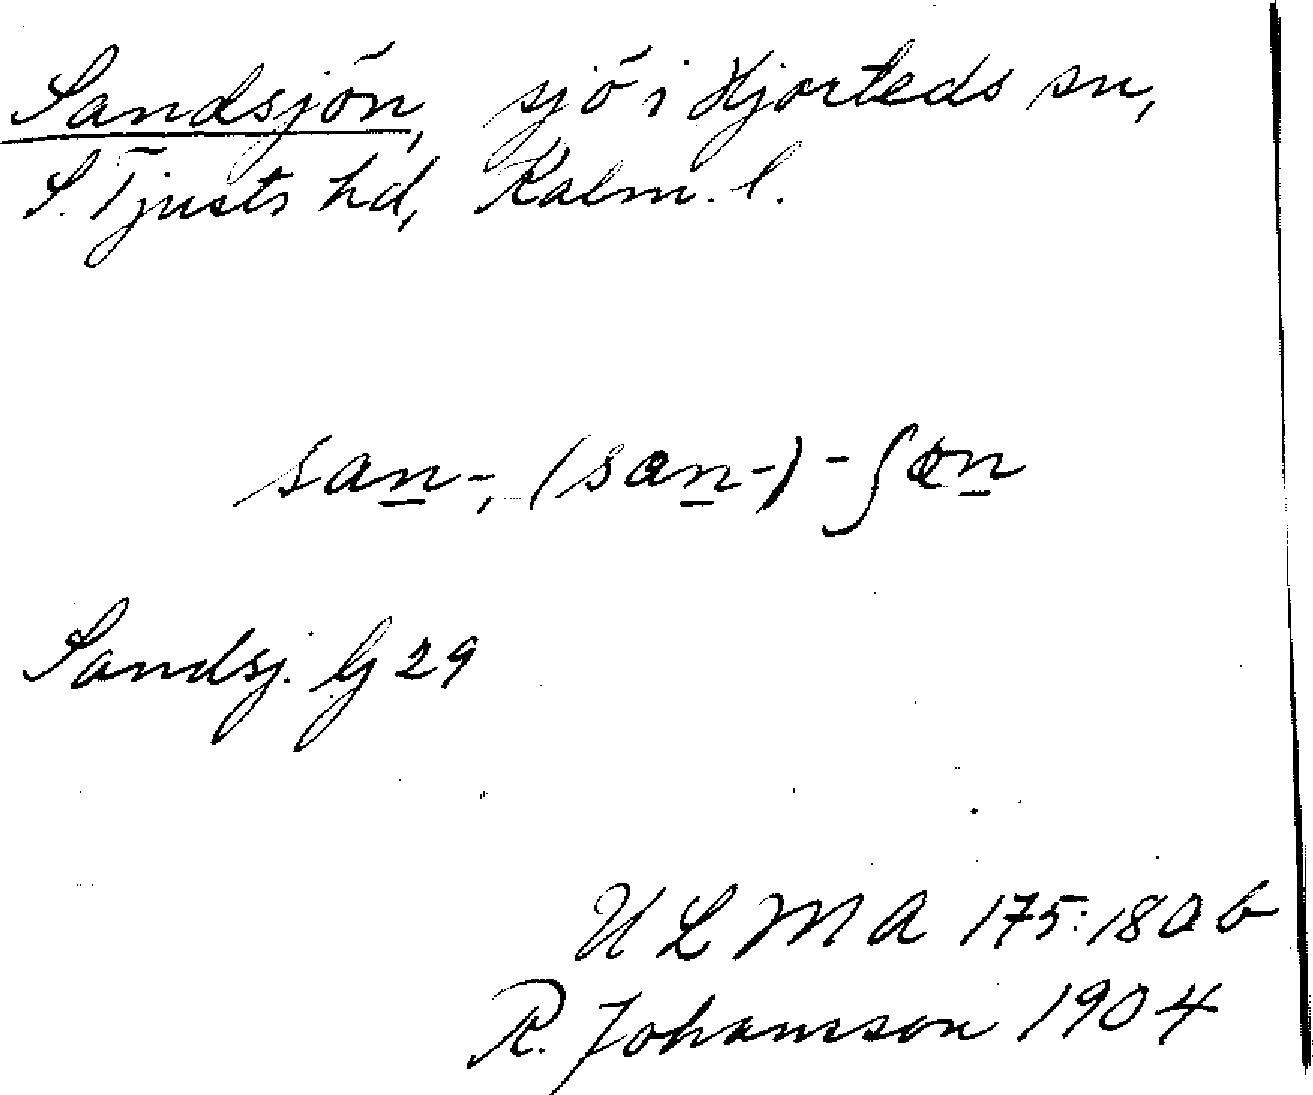 Sandsjön, sjö i Hjorteds sn,
S. Tjusts hd, Kalm. l.
san-, (san-) -ʃøn
Sandsj. Gj 29
ULMA 175:180 b
R. Johansson 1904